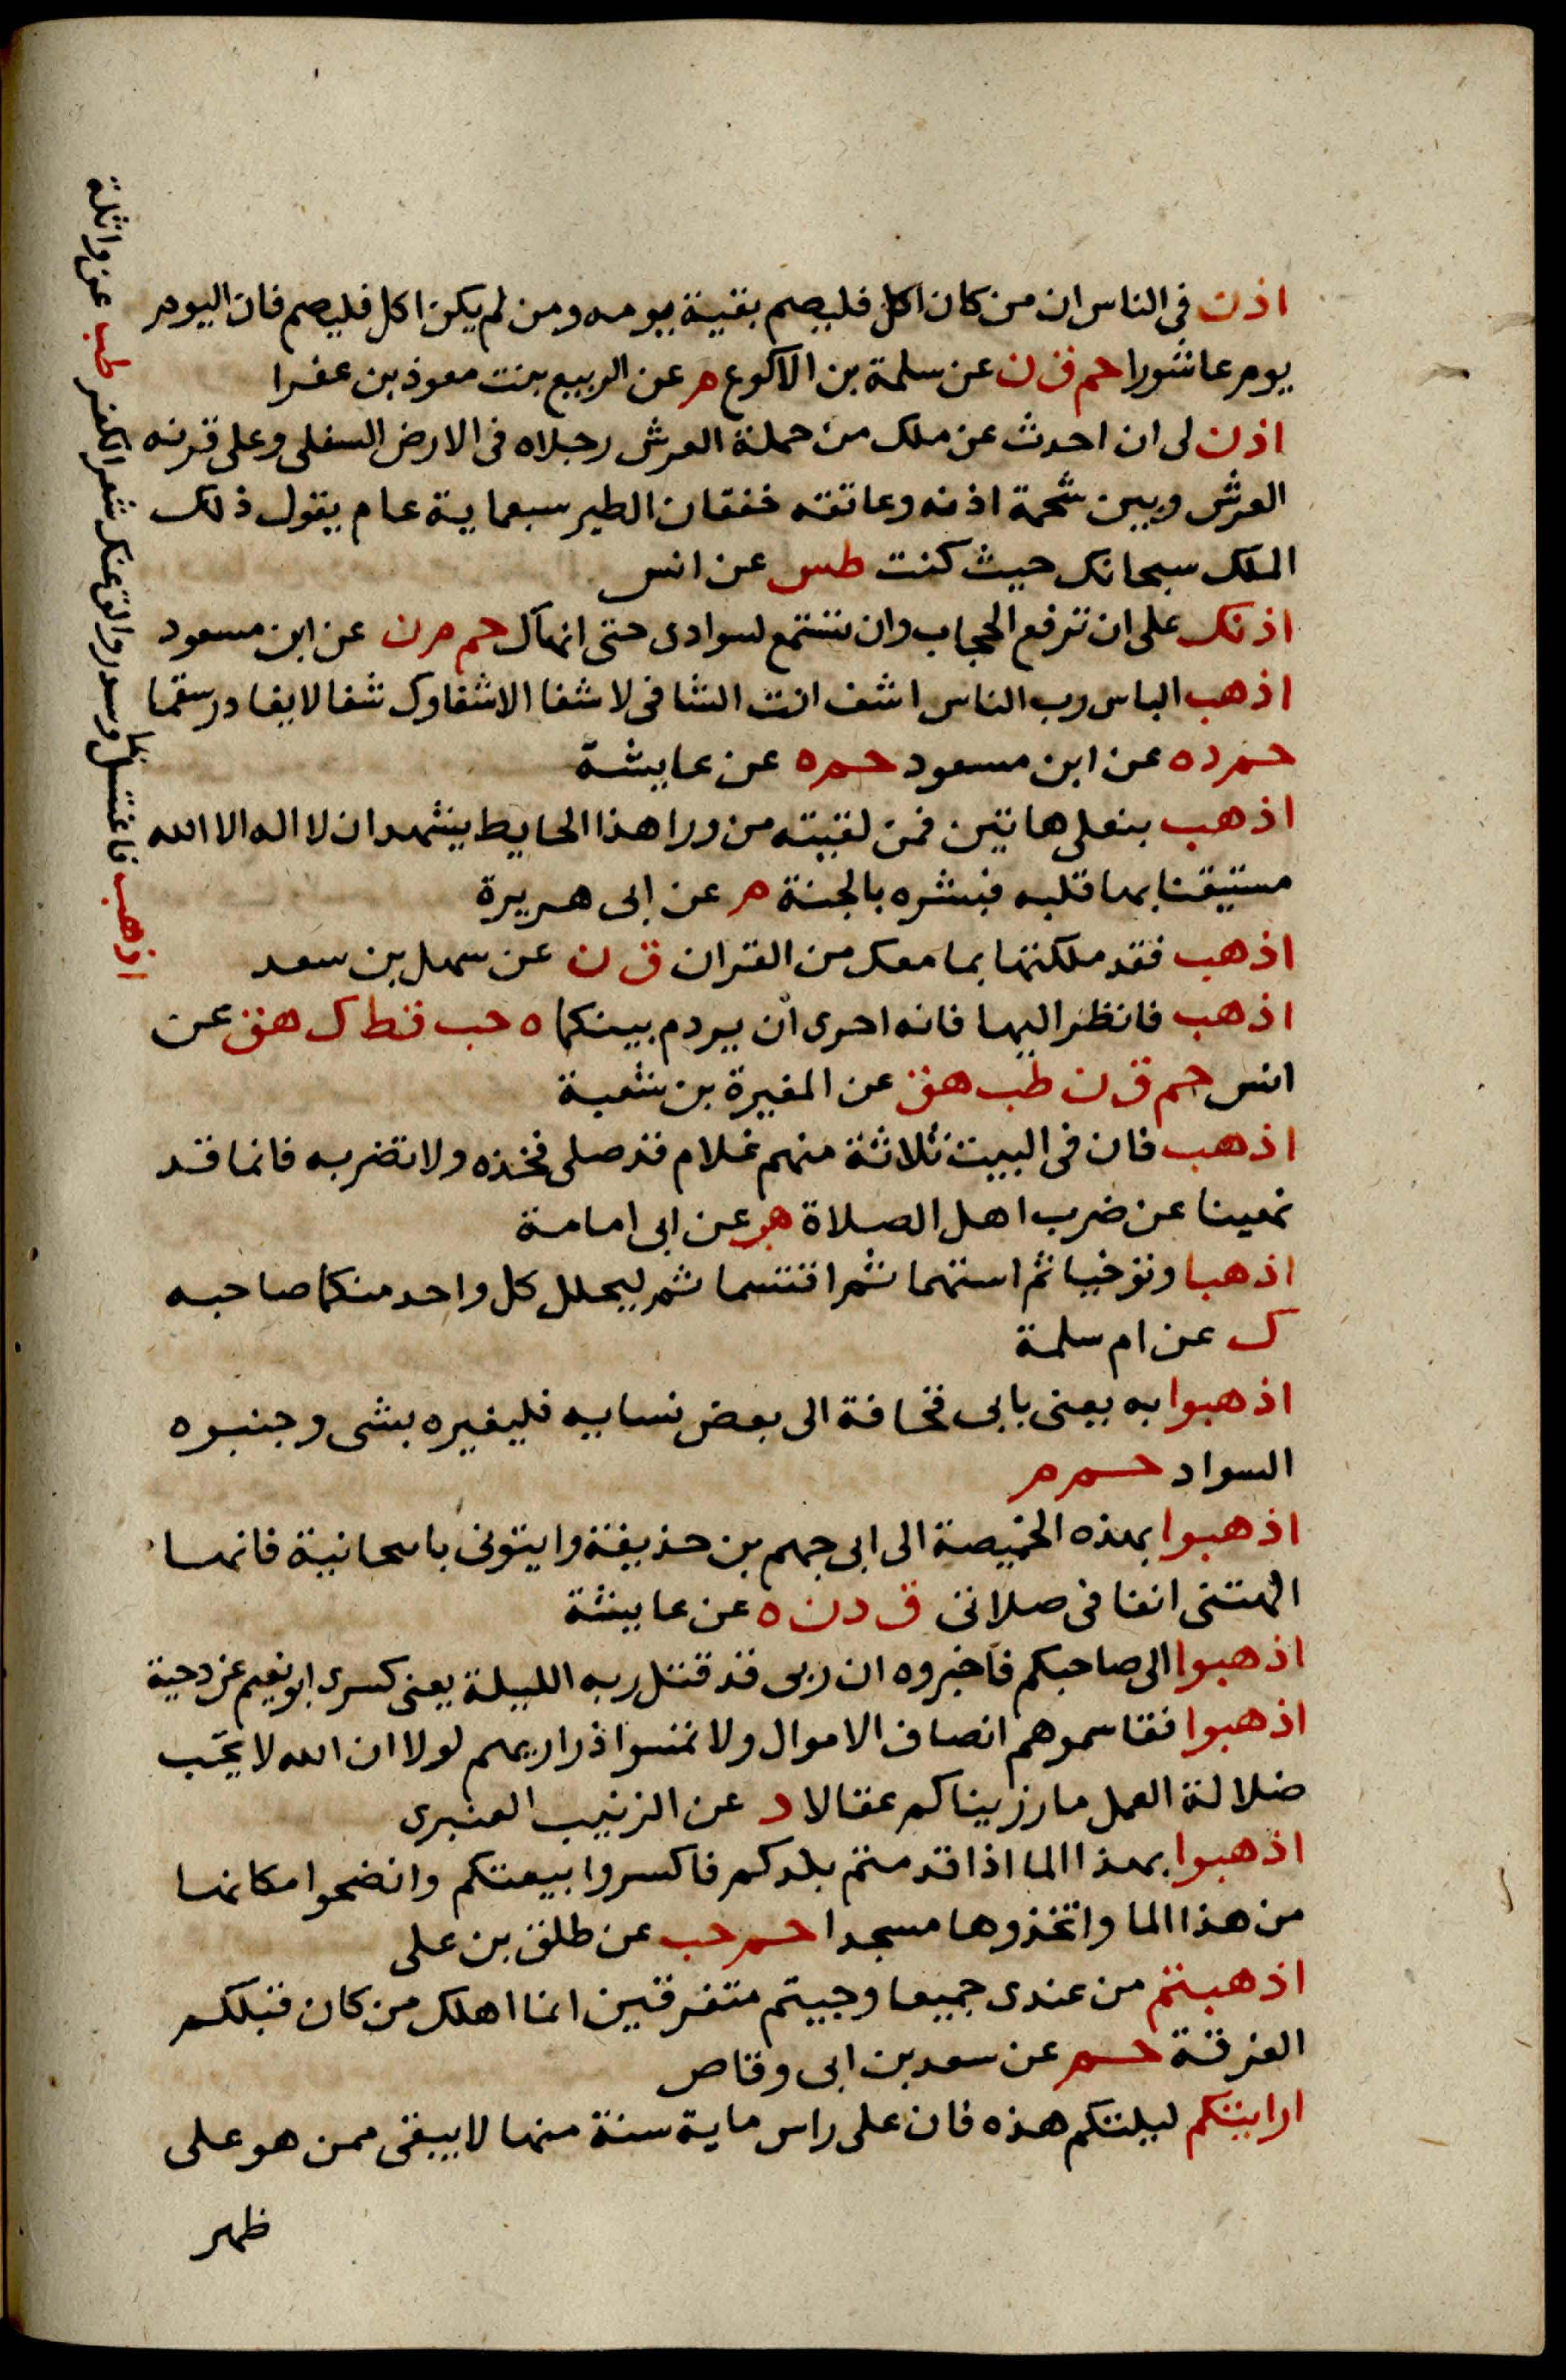 اذن فى الناس ان من كان اكل فليصم بقية يومه ومن لم يكن اكل فليصم فان اليوم
يوم عاشورا حم ق ن عن سلمة بن الاكوع م عن الربيع بنت معوذ بن عفرا
اذن لى ان احدث عن ملك من حملة العرش رجلاه فى الارض السفلى وعلى قرنه
العرش وبين شحمة اذنه وعاتقه خفقان الطير سبعماية عام يقول ذلك
الملك سبحانك حيث كنت طس عن انس
اذنك على ان ترفع الحجاب وان تستمع لسوادى حتى انهاك حم م ن عن ابن مسعود
اذهب الباس رب الناس اشف انت الشافى لا شفا الا شفاوك شفا لا يغادر سقما
حم د ه عن ابن مسعود حم ه عن عايشة
اذهب بنعلى هاتين فمن لقيته من ورا هذا الحايط يشهد ان لا اله الا الله
مستيقنا بها قلبه فبشره بالجنة م عن ابى هريرة
اذهب فقد ملكتها بما معك من القران ق ن عن سهل بن سعد
اذهب فانظر اليها فانه احرى ان يردم بينكما ه حب قط ك هق عن
انس حم ق ن طب هق عن المغيرة بن شعبة
اذهب فان فى البيت ثلاثة منهم غلام قد صلى فخذه ولا تضربه فانما قد
نهينا عن ضرب اهل الصلاة هب عن ابى امامة
اذهبا وتوخيا ثم استهما ثم اقتسما ثم ليحلل كل واحد منكما صاحبه
ك عن ام سلمة
اذهبوا به يعنى بابى قحافة الى بعض نسايه فليغيره بشى وجنبوه
السواد حم م
اذهبوا بهذه الخميصة الى ابى جهم بن حذيفة وايتونى بانبجانية فانها
الهتنى انفا فى صلاتى ق د ن ه عن عايشة
اذهبوا الى صاحبكم فاخبروه ان ربى قد قتل ربه الليلة يعنى كسرى ابو نعيم عن دحية
اذهبوا فقاسموهم انصاف الاموال ولا تمسوا ذراريهم لولا ان الله لا يحب
ضلالة العمل ما رزيناكم عقالا د عن الزبيب العنبرى
اذهبوا بهذا الما اذا قدمتم بلدكم فاكسروا بيعتكم وانضحوا مكانها
من هذا الما واتخذوها مسجدا حم حب عن طلق بن على
اذهبتم من عندى جميعا وجيتم متفرقين انما اهلك من كان قبلكم
الفرقة حم عن سعد بن ابى وقاص
ارايتكم ليلتكم هذه فان على راس ماية سنة منها لا يبقى ممن هو على
ظهر
اذهب فاغتسل بما وسدر والق عنك شعر الكفر طب عن واثلة